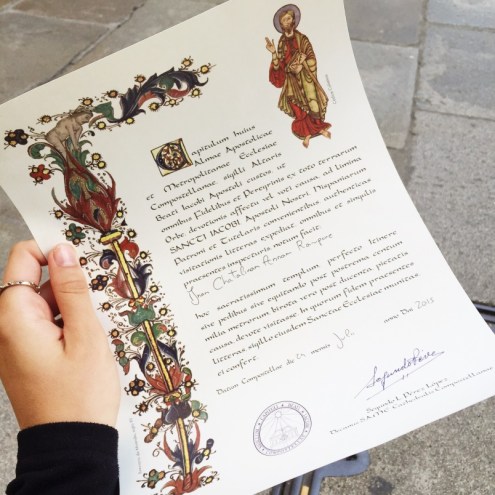 Capitulum huius
Almae Apostolicae
et Metropolitanae Ecclesiae
Compostellanae sigilli Altaris
Beati Iacobi Apostoli custos, ut
omnibus Fidelibus et Peregrinis ex toto terrarum
Orbe, devotionis affectu vel voti causa, ad limina
SANCTI IACOBI, Apostoli Nostri, Hispaniarum
Patroni et Tutelaris convenientibus, authenticas
visitationis litteras expediat, omnibus et singulis
praesentes inspecturis notum facit:
hoc sacratissimum templum, perfecto Itinere
sive pedibus sive equitando post postrema centum
milia metrorum, birota vero post ducenta, pietatis
causa, devote visitasse. In quorum fidem praesentes
litteras, sigillo eiusdem Sanctae Ecclesiae munitas,
ei confero.
Datum Compostellae die 24 mensis Jul anno Dni 2015
Segundo L. Pérez López